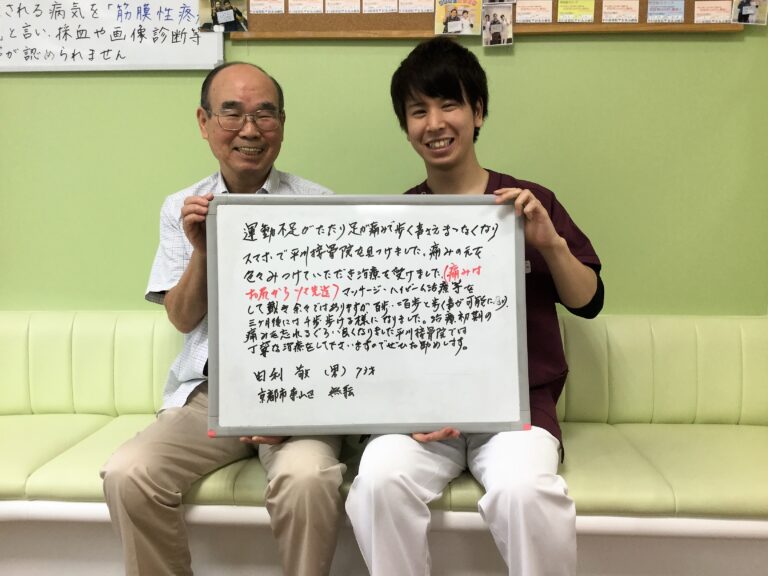 される病気を「筋膜性疼
と言い、採血や画像診断等
が認められません
運動不足がたたり足が痛みで歩く事さえつなくなり
スマホで平川接骨院を見つけました、痛みの元を
色々みつけていただき治療を受けました(痛みは
お尻から 先生)マッサージ・ハイボルト治療等を
して戴き 余々ではありますが百歩、二百歩と歩く事が可能に
三ヶ月後には千歩歩ける様になりました。治療初期の
痛みも忘れるぐらい良くなりました平川接骨院では
丁寧な治療をして下さいます。ぜひお勧めします。
田利 (男) 73才
京都市東山区 無職